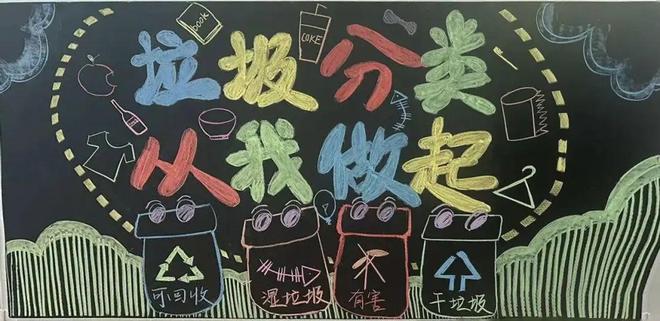 BOOK
COKE
垃圾分类
从我做起
可回收
湿垃圾
有害
干垃圾